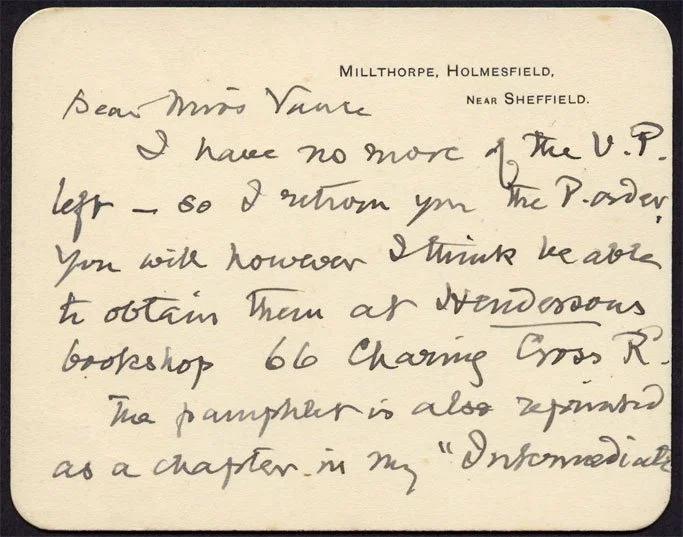 MILLTHORPE, HOLMESFIELD,
NEAR SHEFFIELD.
Dear Miss Vance
I have no more of the V. P.
left – so I return you the P. order.
You will however I think be able
to obtain them at Hendersons
bookshop 66 Charing Cross R.
The pamphlet is also reprinted
as a chapter in my "Intermediate